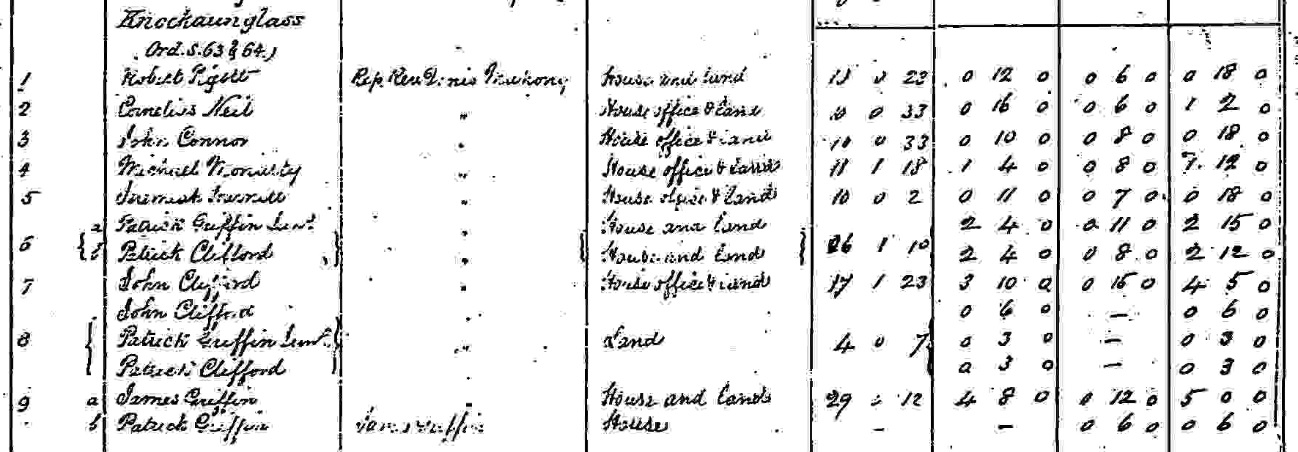 Knockaunglass
Ord. S. 63 & 64)
1 Robert Pigott Rep. Rev. Denis House and land 13 0 23 0 12 0 0 6 0 0 18 0
2 Cornelius Neil " House office & land 10 0 33 0 16 0 0 6 0 1 2 0
3 John Connor " House office & land 10 0 33 0 10 0 0 8 0 0 18 0
4 Michael Moriarty " House office & land 11 1 18 1 4 0 0 8 0 12 0
5 Jeremiah " House office & land 10 0 2 0 11 0 0 7 0 0 18 0
a Patrick Griffin Junr. " House and land 2 4 0 0 11 0 2 15 0
6 { b Patrick Clifford } " { House and land } 26 1 10 2 4 0 0 8 0 2 12 0
7 John Clifford " House office & land 17 1 23 3 10 0 0 15 0 4 5 0
John Clifford 0 6 0 — 0 6 0
8 { Patrick Griffin Junr. } " Land 4 0 7 { 0 3 0 — 0 3 0
Patrick Clifford 0 3 0 — 0 3 0
9 a James Griffin " House and land 29 0 12 4 8 0 0 12 0 5 0 0
b Patrick Griffin James Griffin House — — 0 6 0 0 6 0